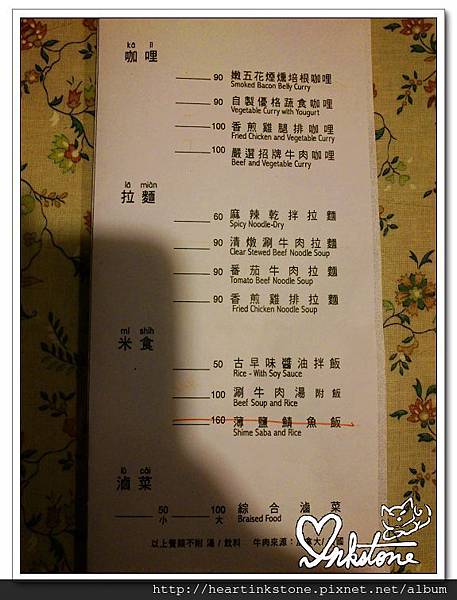 kā lǐ
咖哩
90 嫩五花煙燻培根咖哩
Smoked Bacon Belly Curry
90 自製優格蔬食咖哩
Vegetable Curry with Yougurt
100 香煎雞腿排咖哩
Fried Chicken and Vegetable Curry
100 嚴選招牌牛肉咖哩
Beef and Vegetable Curry
lā miàn
拉麵
60 麻辣乾拌拉麵
Spicy Noodle-Dry
90 清燉涮牛肉拉麵
Clear Stewed Beef Noodle Soup
90 番茄牛肉拉麵
Tomato Beef Noodle Soup
90 香煎雞排拉麵
Fried Chicken Noodle Soup
mǐ shíh
米食
50 古早味醬油拌飯
Rice - With Soy Sauce
100 涮牛肉湯 附飯
Beef Soup and Rice
160 薄鹽鯖魚飯
Shime Saba and Rice
lǔ cài
滷菜
50 100 綜合滷菜
小 大 Braised Food
以上餐類不附 湯 / 飲料 牛肉來源：大/ 國
Inkstone
http://heartinkstone.pixnet.net/album